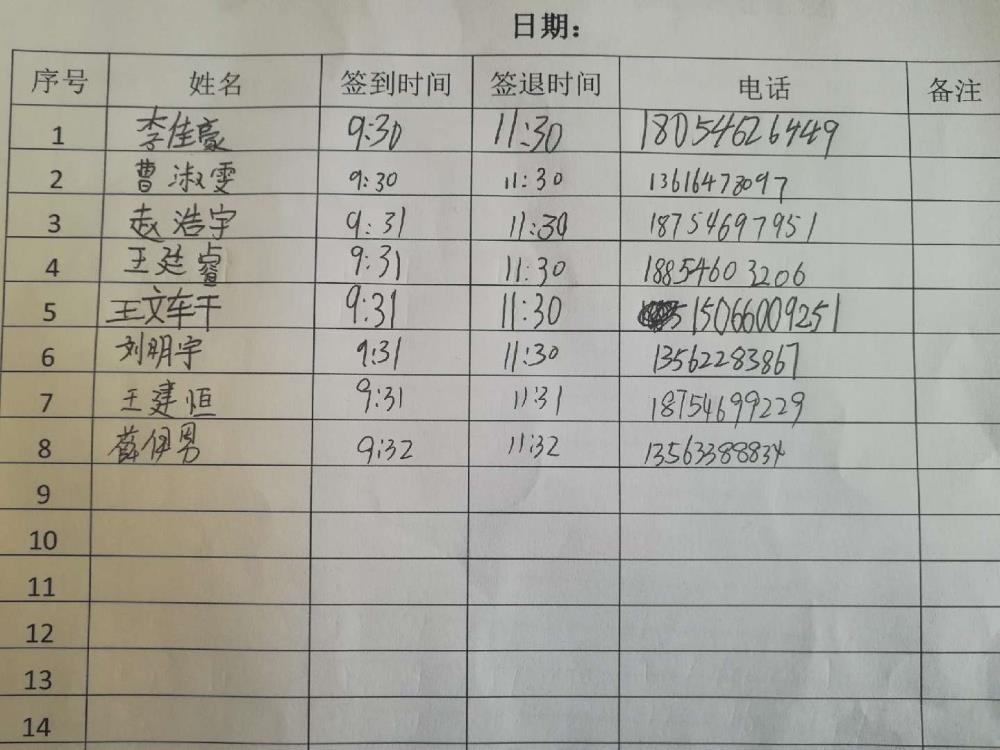 日期：
序号 姓名 签到时间 签退时间 电话 备注
1 李佳豪 9:30 11:30 18054626449
2 曹淑雯 9:30 11:30 13616478097
3 赵浩宇 9:31 11:30 18754697951
4 王廷睿 9:31 11:30 18854603206
5 王文轩 9:31 11:30 15066009251
6 刘明宇 9:31 11:30 13562283867
7 王建恒 9:31 11:31 18754699229
8 薛伊男 9:32 11:32 13563388834
9
10
11
12
13
14